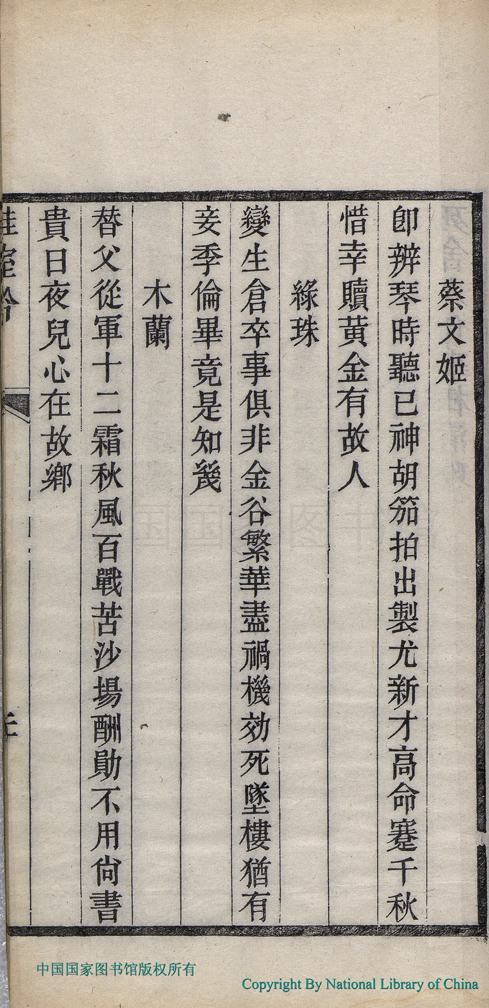 蔡文姬
卽辨琴時聽已神胡笳拍出製尤新才高命蹇千秋
惜幸贖黃金有故人
綠珠
變生倉卒事俱非金谷繁華盡禍機効死墜樓猶有
妾季倫畢竟是知幾
木蘭
替父從軍十二霜秋風百戰苦沙場酬勛不用尙書
貴日夜兒心在故鄉
中国国家图书馆版权所有
Copyright By National Library of China